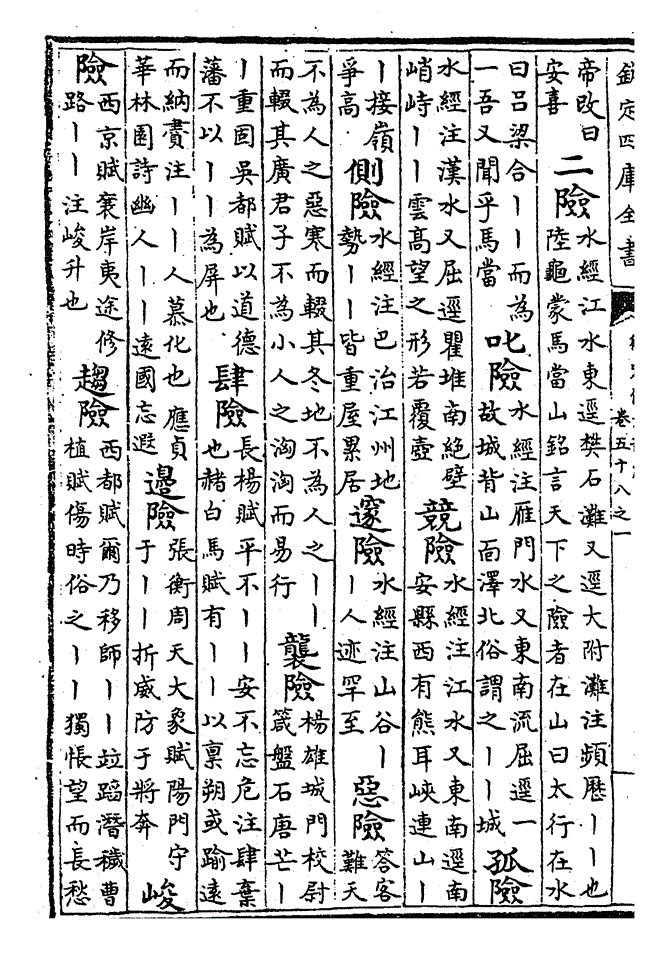 欽定四庫全書
卷五十八之一
帝改曰
安喜
二險
水經江水東逕樊石灘又逕大附灘注頻歷丨丨也
陸龜蒙馬當山銘言天下之險者在山曰太行在水
曰呂梁合丨丨而為
一吾又聞乎馬當
叱險
水經注雁門水又東南流屈逕一
故城背山面澤北俗謂之丨丨城
孤險
水經注漢水又屈逕瞿堆南絶壁
峭峙丨丨雲高望之形若覆壺
競險
水經注江水又東南逕南
安縣西有熊耳峽連山丨
丨接嶺
爭高
側險
水經注巴治江州地
勢丨丨皆重屋累居
邃險
水經注山谷丨
丨人迹罕至
惡險
答客
難天
不為人之惡寒而輟其冬地不為人之丨丨
而輟其廣君子不為小人之洶洶而易行
襲險
楊雄城門校尉
箴盤石唐芒丨
丨重固吳都賦以道德
藩不以丨丨為屏也
肆險
長楊賦平不丨丨安不忘危注肆棄
也赭白馬賦有丨丨以禀朔或踰遠
而納賮注丨丨人慕化也應貞
華林園詩幽人丨丨遠國忘遐
邊險
張衡周天大象賦陽門守
于丨丨折威防于將奔
峻
險
西京賦襄岸夷途修
路丨丨注峻升也
趨險
西都賦爾乃移師丨丨竝蹈潛穢曹
植賦傷時俗之丨丨獨悵望而長愁